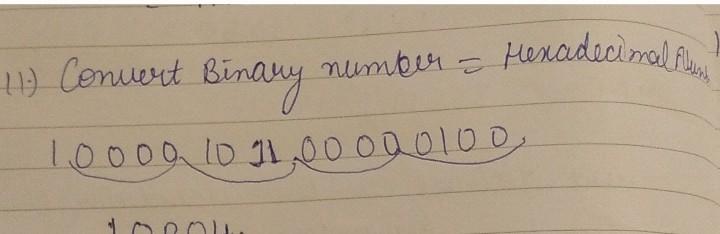 11) Convert Binary number = Hexadecimal
10000 1011 0000 0100